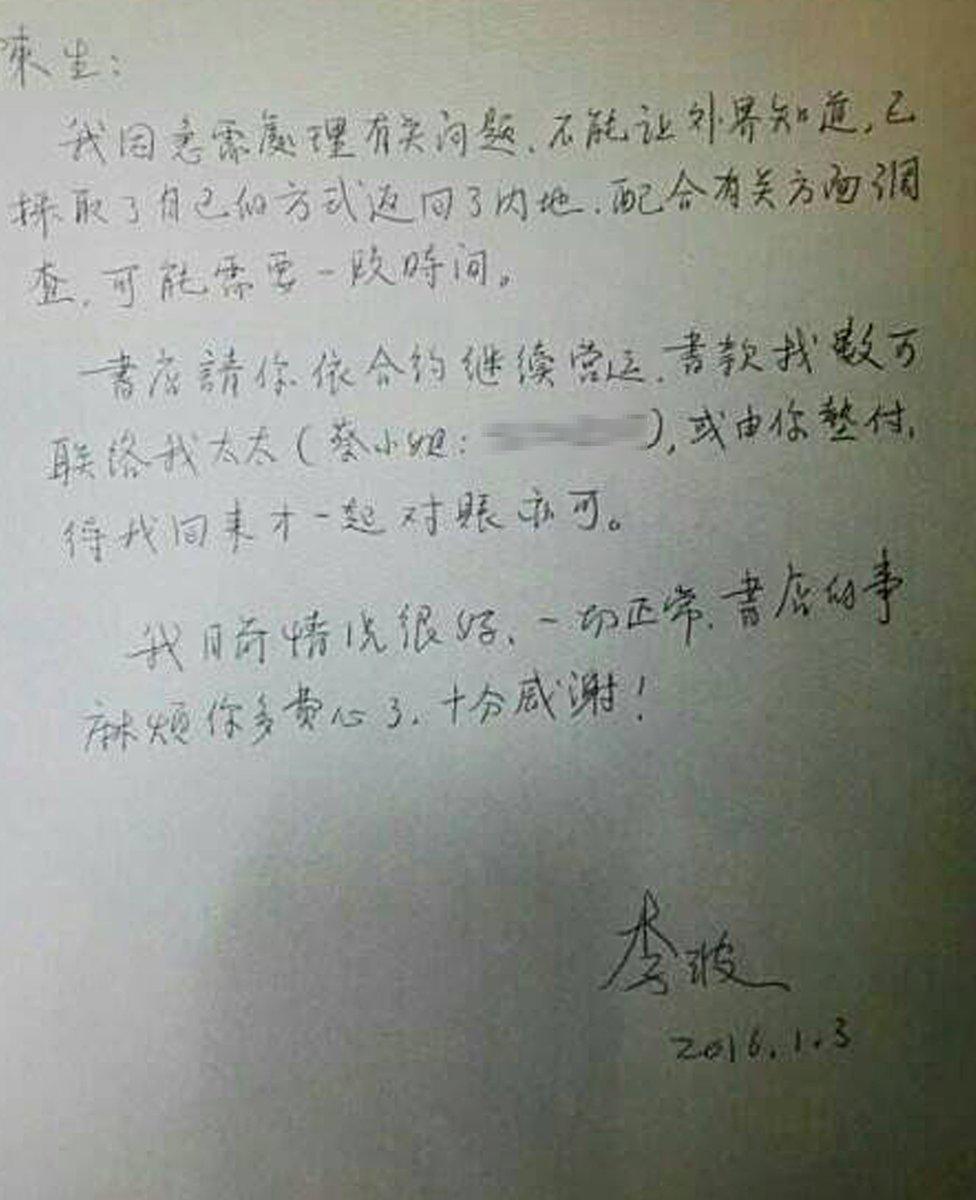 陳生：
我因急需處理有关问题，不能让外界知道，已
採取了自己的方式返回了内地，配合有关方面调
查，可能需要一段時间。
書店請你依合约继续营运，書款找數可
联络我太太（蔡小姐：），或由你墊付，
待我回来才一起对賬亦可。
我目前情况很好，一切正常，書店的事
麻烦你多费心了，十分感謝！
李波
2016.1.3